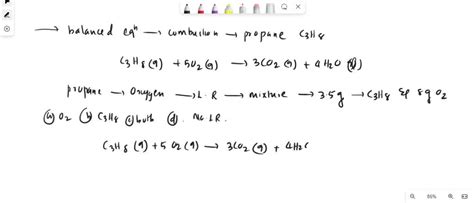 → balanced eqn → combustion → propane C3H8
C3H8 (g) + 5O2 (g) → 3CO2 (g) + 4H2O (l)
propane → Oxygen → L.R → mixture → 3.5g → C3H8 & 8g O2
(a) O2 (b) C3H8 (c) both (d) No L.R.
C3H8 (g) + 5 O2 (g) → 3CO2 (g) + 4H2O